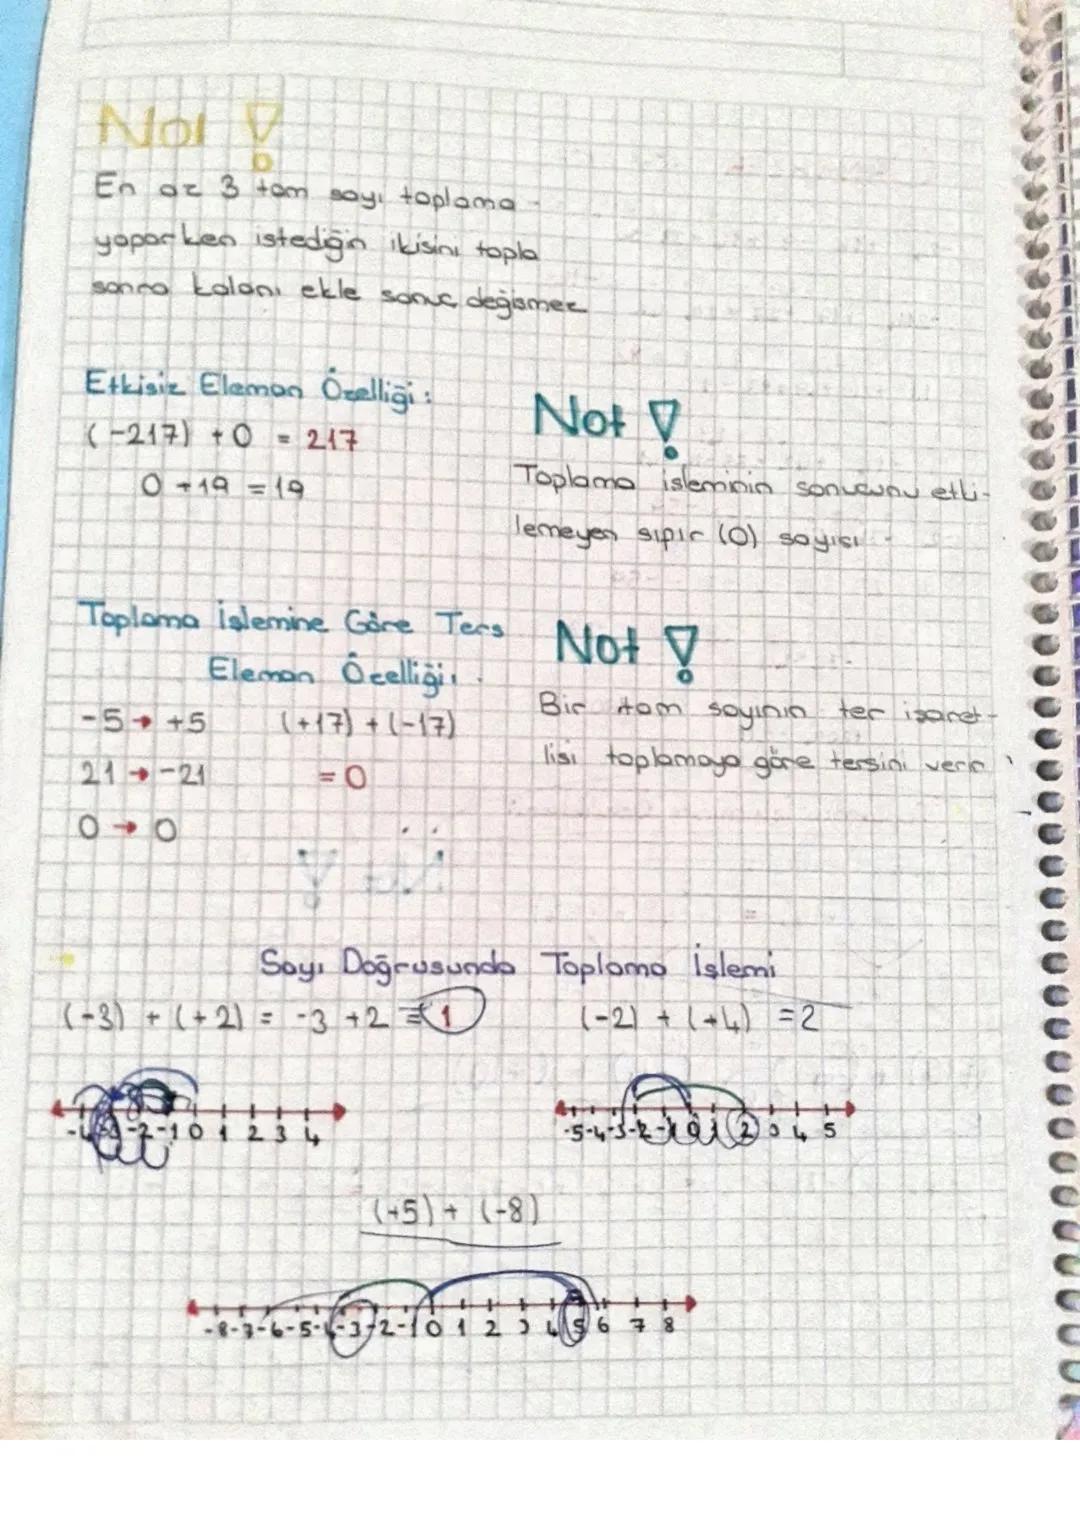 Not !
En az 3 tam sayı toplama
yaparken istediğin ikisini topla
sonra kalanı ekle sonuc değişmez
Etkisiz Eleman Özelliği:
(-217) + 0 = 217
0 + 19 = 19
Not !
Toplama işleminin sonucunu etki-
lemeyen sıpır (0) sayısı
Toplama İşlemine Göre Ters
Eleman Özelliği
-5 → +5
21 → -21
0 → 0
(+17) + (-17)
= 0
Not !
Bir tam sayının ter işaret-
lisi toplamaya göre tersini verir
Sayı Doğrusunda Toplama İşlemi
(-3) + (+2) = -3 +2 = 1
(-2) + (+4) = 2
-2 -1 0 1 2 3 4
-5 -4 -3 -2 -1 0 1 2 3 4 5
(+5) + (-8)
-8 -7 -6 -5 -4 -3 -2 -1 0 1 2 3 4 5 6 7 8